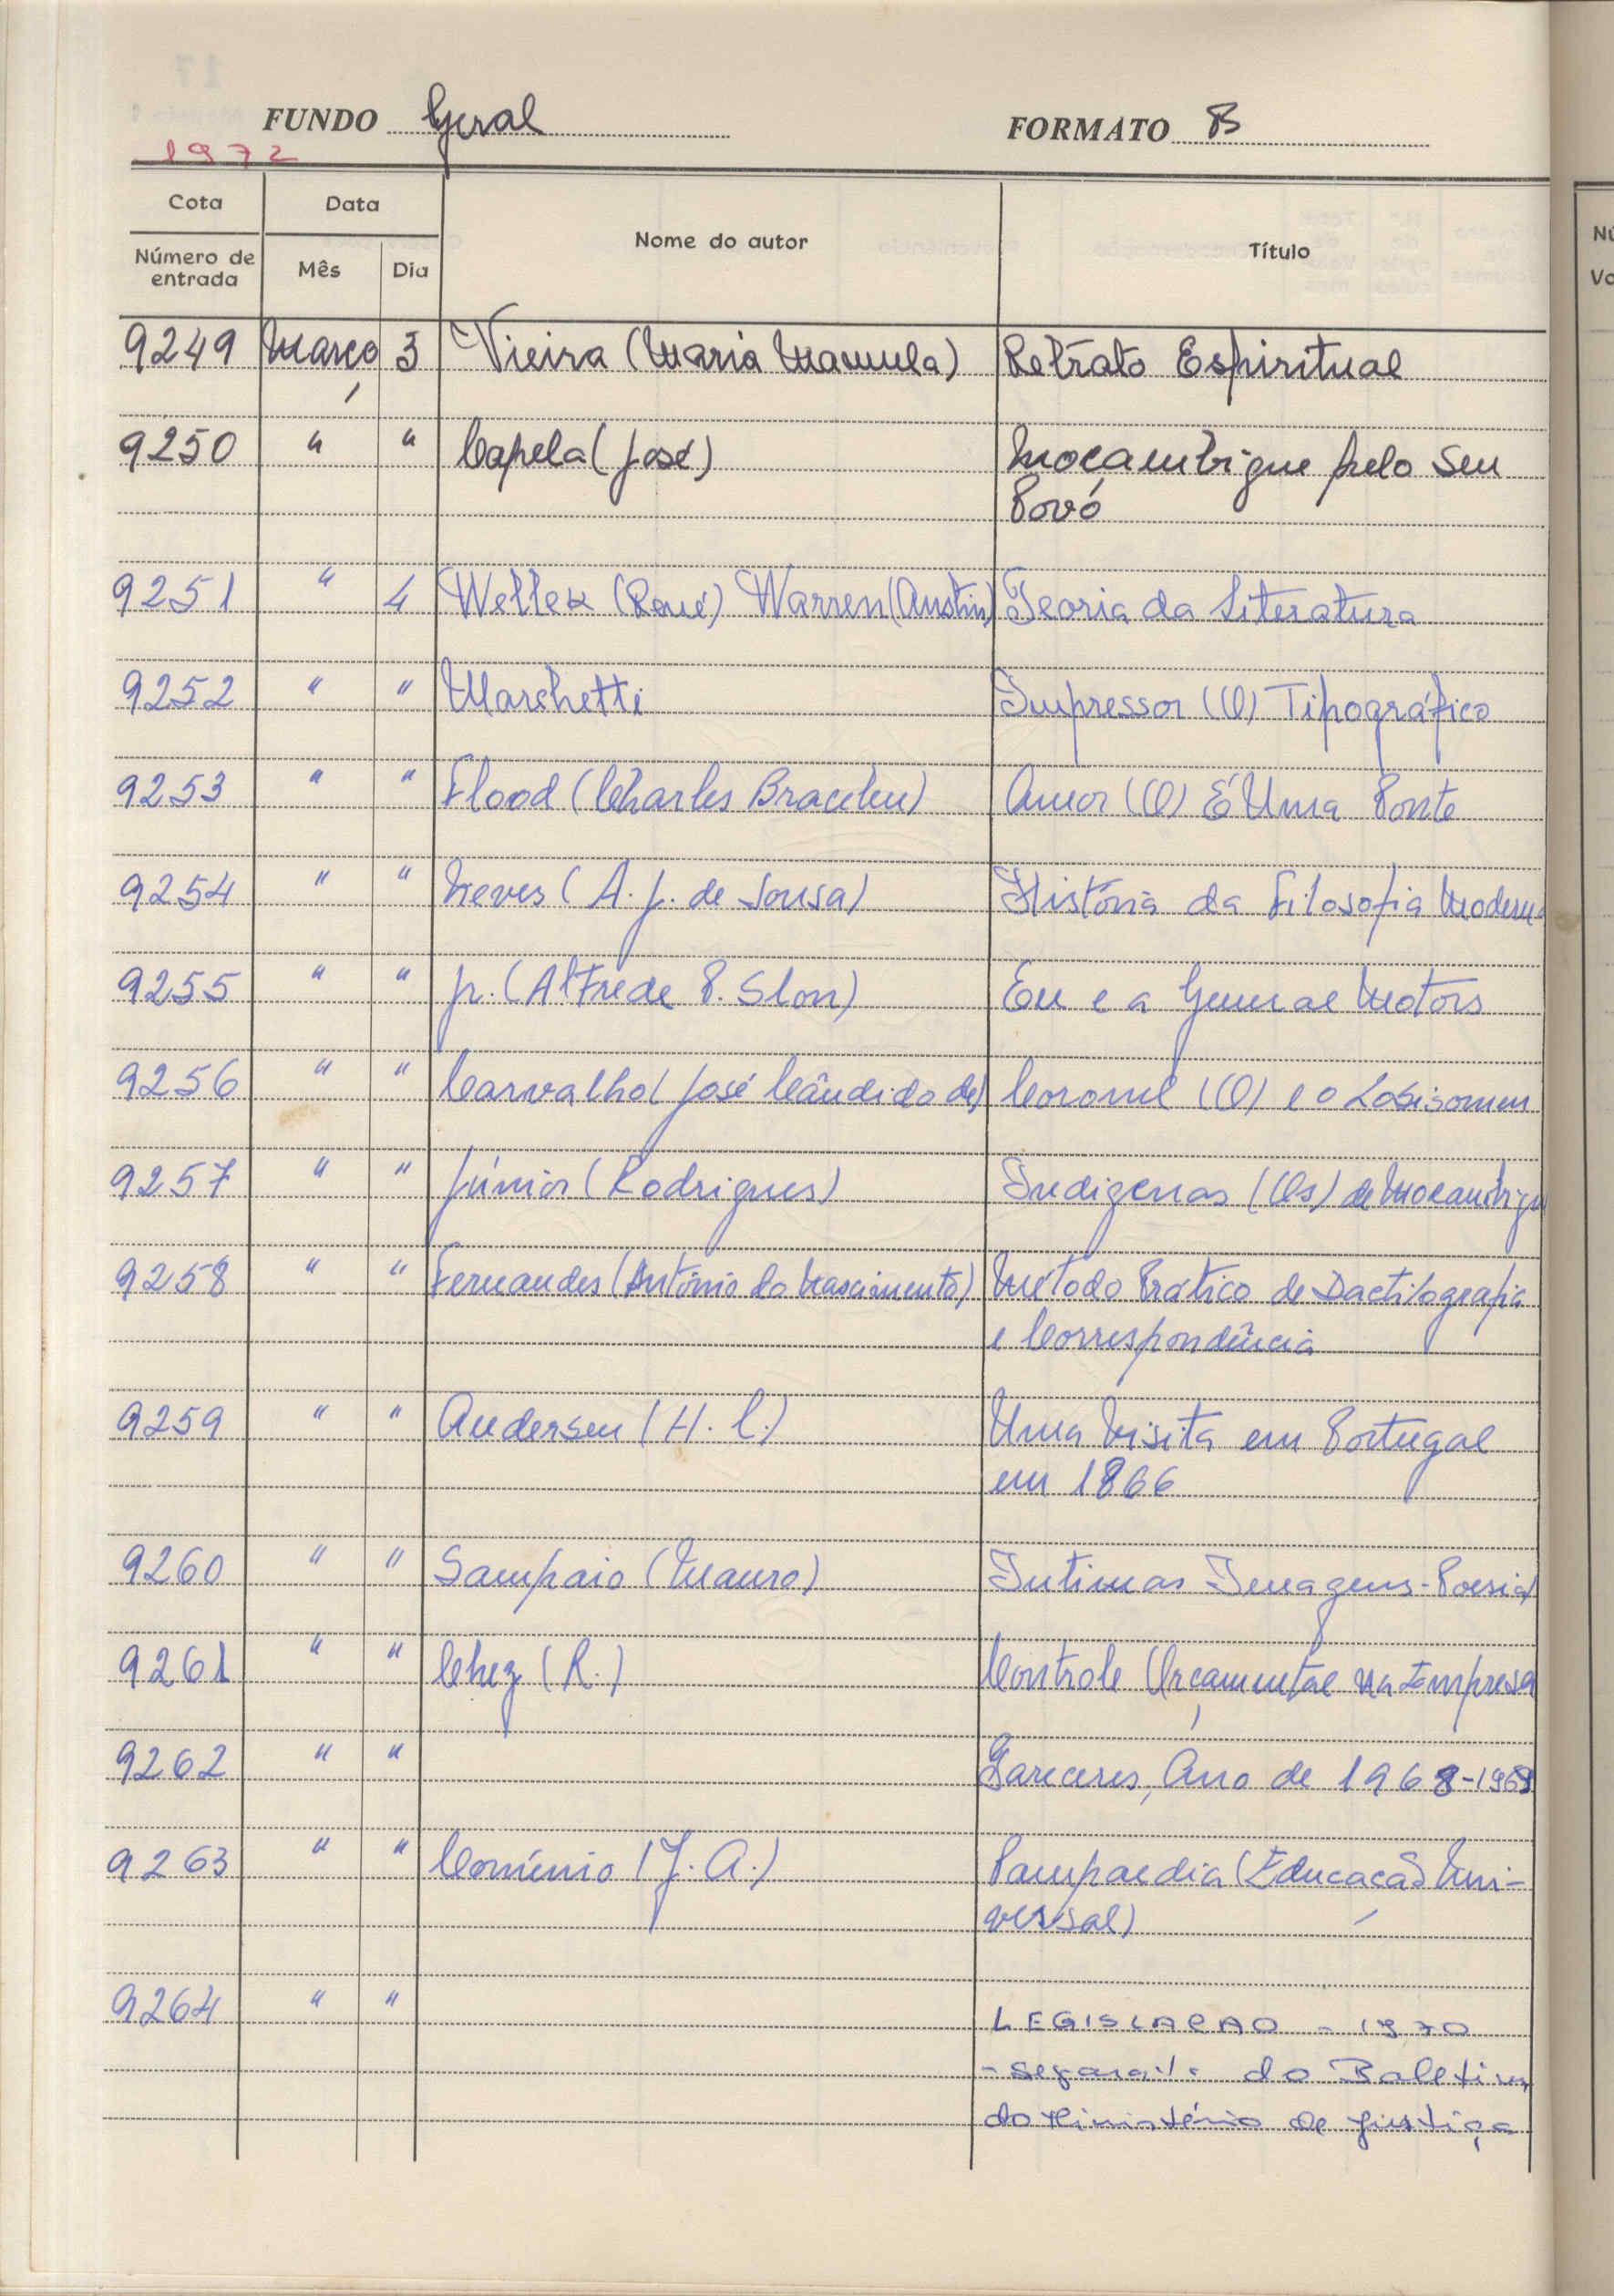 FUNDO Geral FORMATO B
1972
Cota Data Nome do autor Título
Número de entrada Mês Dia
9249 Março 3 Vieira (Maria Manuela) Retrato Espiritual
9250 " " Capela (José) Moçambique pelo Seu
Povo
9251 " 4 Wellek (René) Warren (Austin) Teoria da Literatura
9252 " " Marshetti Impressor (O) Tipográfico
9253 " " Flood (Charles Bracelen) Amor (O) É Uma Ponte
9254 " " Neves (A. J. de Sousa) História da Filosofia Moderna
9255 " " Jr. (Alfrede P. Slon) Eu e a General Motors
9256 " " Carvalho (José Cândido de) Coronel (O) e o Lobisomen
9257 " " Júnior (Rodrigues) Indigenas (Os) de Mocambiqu
9258 " " Fernandes (António do Nascimento) Método Prático de Dactilografia
e Correspondência
9259 " " Andersen (H. C.) Uma Visita em Portugal
em 1866
9260 " " Sampaio (Mauro) Intimas Imagens - Poesia
9261 " " Chez (R.) Controle Orçamental Na Empresa
9262 " " Pareceres, Ano de 1968-1969
9263 " " Comínio (J. A.) Pampaedia (Educação Uni-
versal)
9264 " " LEGISLAÇAO - 1970
- separata do Boletim
do Ministério de Justiça
Nú
Vo